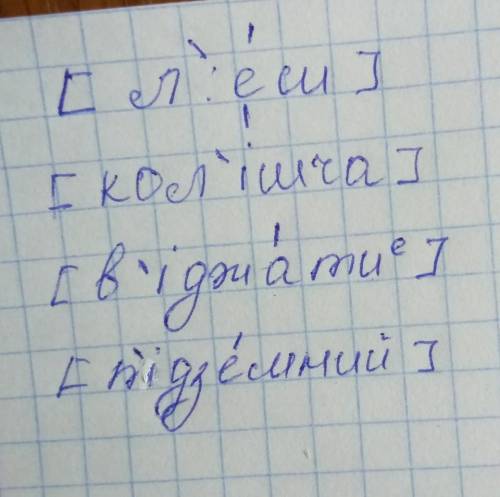 [л`:éш]
[кол`íшча]
[в`іджáтиᵉ]
[п`ідзéмний]